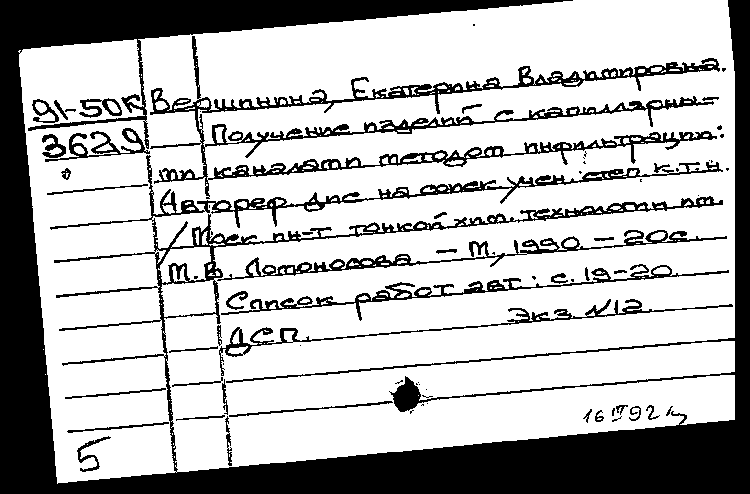 91-50К Вершинина, Екатерина Владимировна.
3629 Получение изделий с капиллярны-
ми каналами методом инфильтрации:
Автореф. дис на соиск. учен. степ. к.т.н.
/ Моск ин-т тонкой хим. технологии им.
М.В. Ломоносова. – М., 1990. – 20с.
Список работ авт: с. 19-20.
ДСП. Экз N12
16 IV 92
5